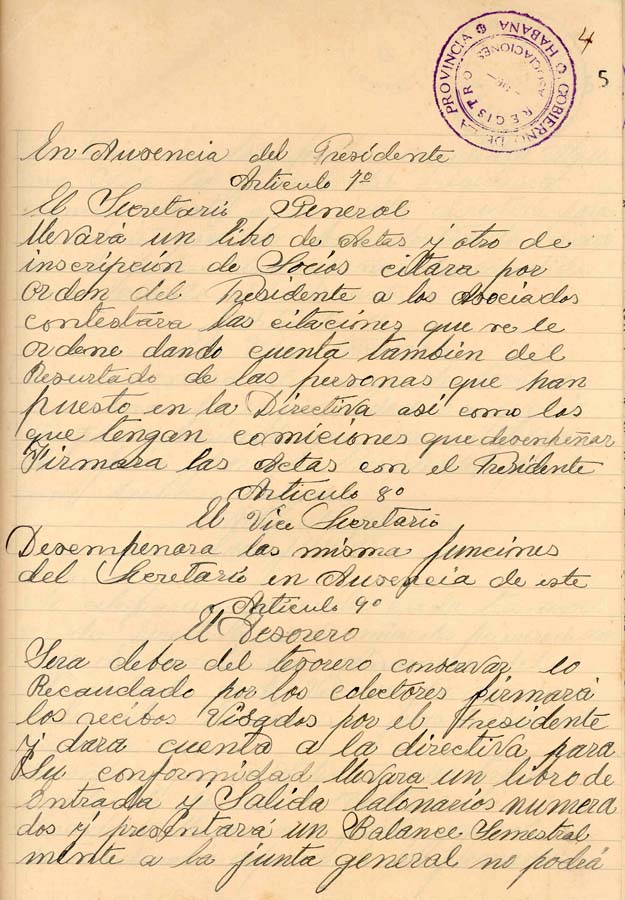 4
5
GOBIERNO DE LA PROVINCIA HABANA
REGISTRO ASOCIACIONES
En Ausencia del Presidente
Articulo 7º
El Secretario General
llevará un libro de Actas y otro de
inscripción de Socios citara por
Orden del Presidente a los Asociados
contestara las citaciones que se le
ordene dando cuenta también del
Resurtado de las personas que han
puesto en la Directiva así como los
que tengan comiciones que desenpeñar
Firmara las Actas con el Presidente
Articulo 8º
El Vice Secretario
Desempenara las misma funciones
del Secretario en Ausencia de este
Articulo 9º
El Tesorero
Sera deber del tesorero conservar lo
Recaudado por los colectores firmará
los recibos Visados por el Presidente
y dara cuenta a la directiva para
Su conformidad llevara un libro de
Entrada y Salida talonarios numera
dos y presentará un Balance Semestral
mente a la junta general no podrá